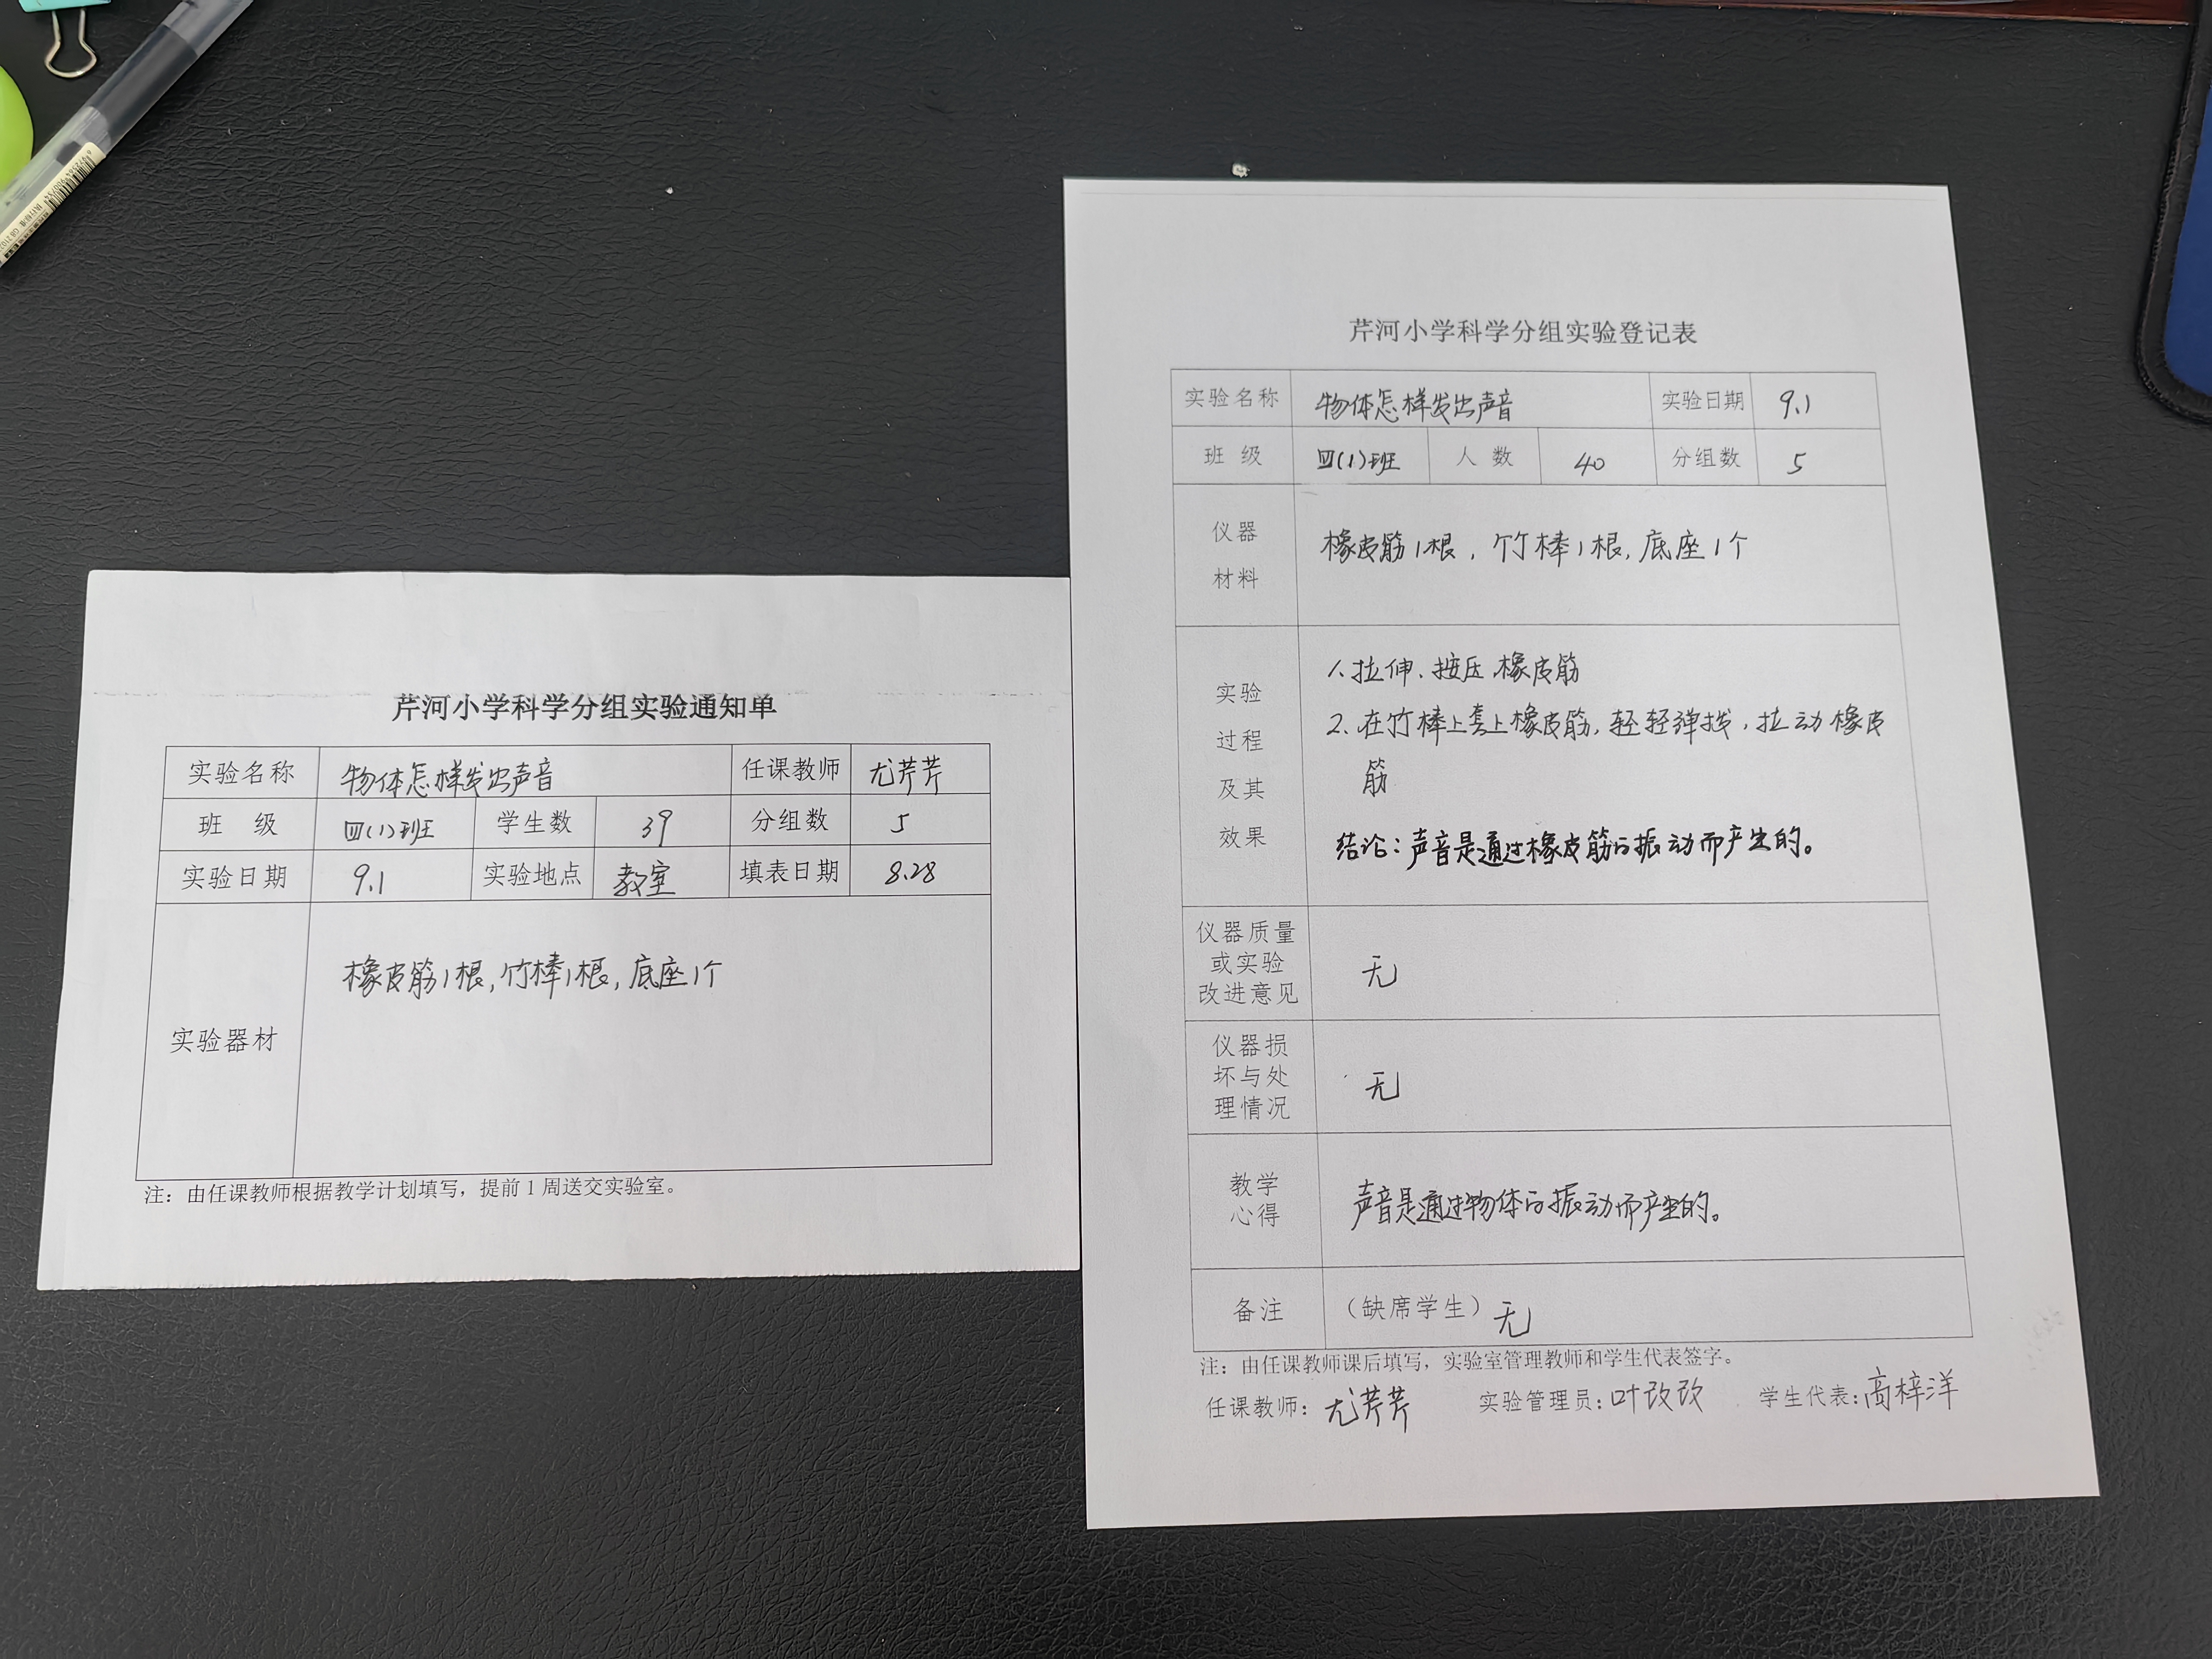 芹河小学科学分组实验通知单
实验名称 物体怎样发出声音 任课教师 尤芹芹
班 级 四(1)班 学生数 39 分组数 5
实验日期 9.1 实验地点 教室 填表日期 8.28
实验器材 橡皮筋1根,竹棒1根,底座1个
注：由任课教师根据教学计划填写，提前1周送交实验室。
芹河小学科学分组实验登记表
实验名称 物体怎样发出声音 实验日期 9.1
班 级 四(1)班 人 数 40 分组数 5
仪器
材料
橡皮筋1根，竹棒1根,底座1个
实验
过程
及其
效果
1、拉伸、按压橡皮筋
2、在竹棒上套上橡皮筋,轻轻弹拨,拉动橡皮
筋
结论：声音是通过橡皮筋的振动而产生的。
仪器质量
或实验
改进意见
无
仪器损
坏与处
理情况
无
教学
心得
声音是通过物体的振动而产生的。
备注 （缺席学生）无
注：由任课教师课后填写，实验室管理教师和学生代表签字。
任课教师：尤芹芹 实验管理员：叶改改 学生代表：高梓洋